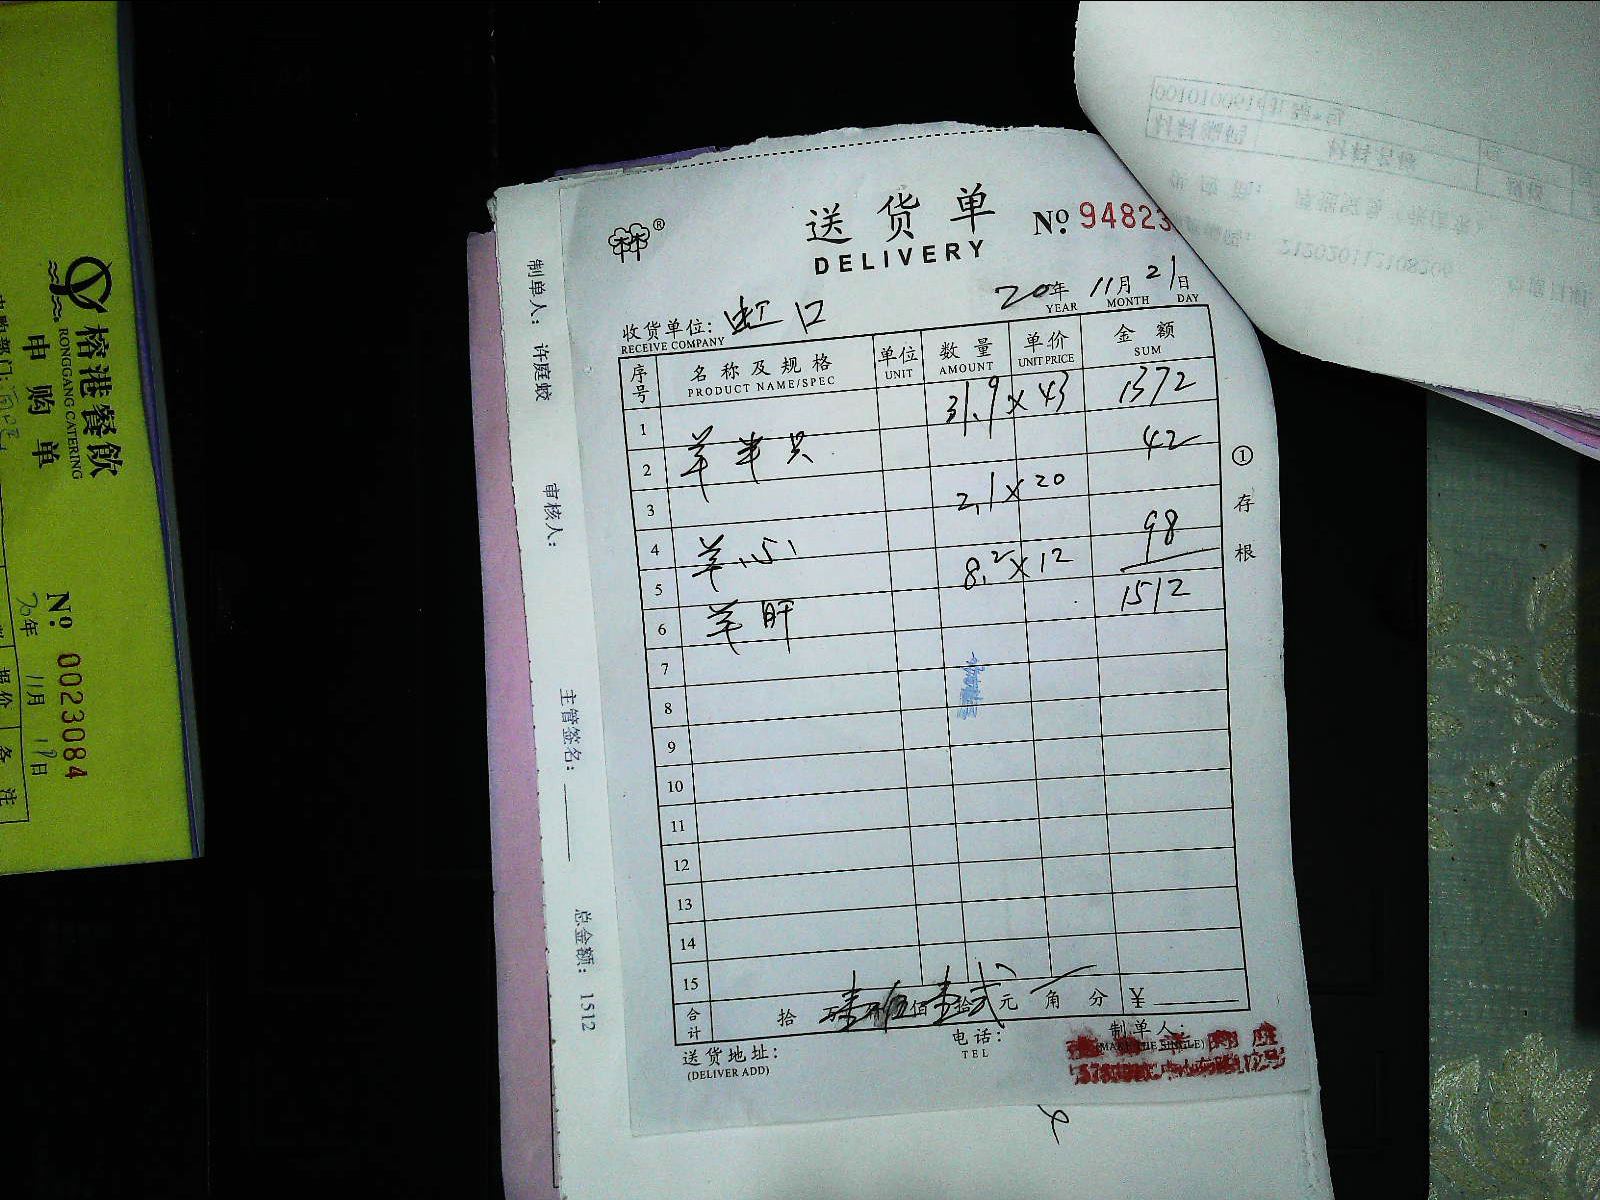 榕港餐飲
RONGGANG CATERING
申购单
No. 0023084
20年 11月 19日
报价 备注
制单人: 许庭蛟
审核人:
主管签名:
总金额: 1512
林 ®
送货单
DELIVERY
No. 94823
20年 11月 21日
YEAR MONTH DAY
收货单位: 虹口
RECEIVE COMPANY
序号 名称及规格 单位 数量 单价 金额
PRODUCT NAME/SPEC UNIT AMOUNT UNIT PRICE SUM
1 31.9 x 43 1372
2 羊半只 42
3 2.1 x 20
4 羊心 98
5 8.2 x 12 1512
6 羊肝
7
8
9
10
11
12
13
14
15
合计 拾 万壹仟伍佰壹拾贰元 角 分 ¥
① 存根
送货地址:
(DELIVER ADD)
电话:
TEL
制单人:
(MAKE THE SINGLE)